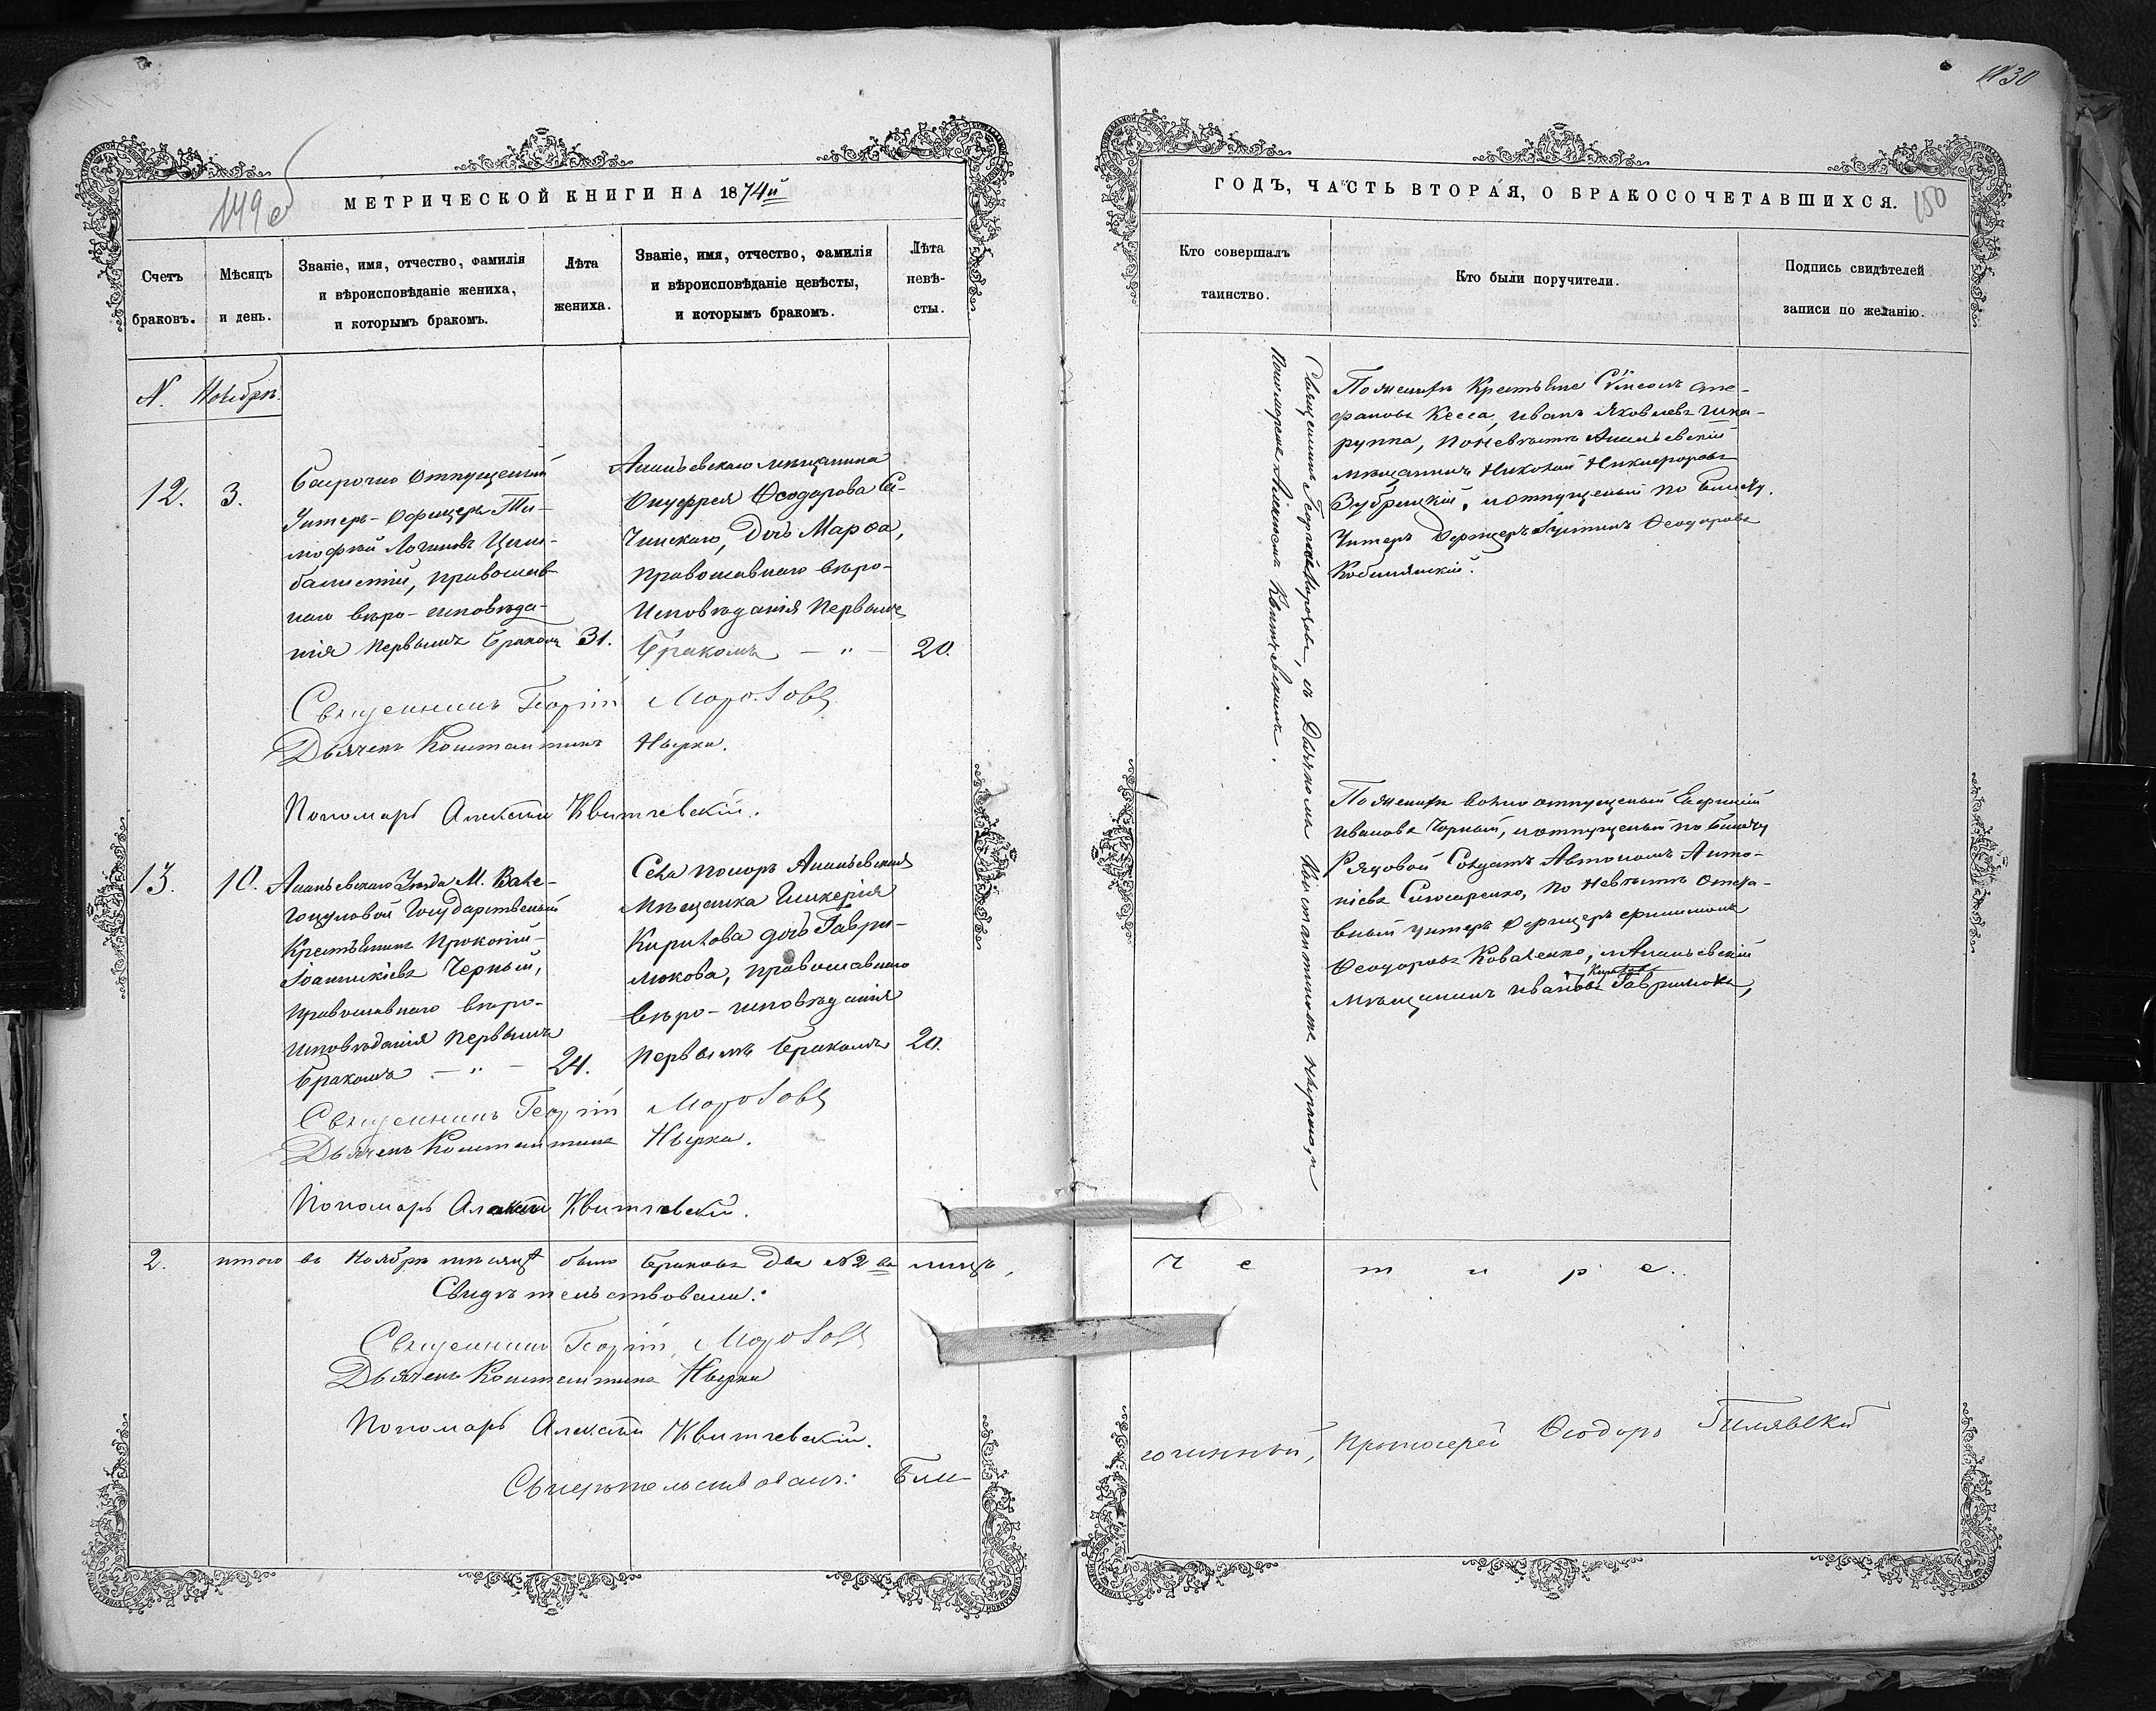 30
149 об
МЕТРИЧЕСКОЙ КНИГИ НА 1874й
Счетъ браковъ.
Мѣсяцъ и день.
Званіе, имя, отчество, фамилія
и вѣроисповѣданіе жениха,
и которымъ бракомъ.
Лѣта
жениха.
Званіе, имя, отчество, фамилія
и вѣроисповѣданіе невѣсты,
и которымъ бракомъ.
Лѣта
невѣ-
сты.
N. Ноябрь.
12.
3.
Безсрочно Отпущеный
Унтеръ-Офицеръ Ти-
мофей Логиновъ
православ-
наго вѣро-исповѣда-
нія первымъ бракомъ
31.
Ананьевскаго мѣщанина
Онуфрея Ѳеодорова Се-
дочь Марѳа,
православнаго вѣро-
исповѣданія первымъ
бракомъ — " —
20.
Священникъ Георгій Морозовъ
Дьячекъ Константинъ Нырка.
Пономарь Алексѣй Квитчевскій.
13.
10.
Ананьевскаго Уѣзда М. Вале-
гоцуловой Государственый
Крестьянинъ Прокопій
Іоанникіевъ Черный,
православнаго вѣро-
исповѣданія первымъ
бракомъ — " —
24.
Села Ананьевская
Мѣщанка Гликерія
Кирилова дочь Гаври-
люкова, православнаго
вѣро-исповѣданія
первымъ бракомъ
20.
Священникъ Георгій Морозовъ
Дьячекъ Константинъ Нырка.
Пономарь Алексѣй Квитчевскій.
2.
итого въ Ноябрѣ мѣсяцѣ было браковъ два №2 въ лицъ,
Свидѣтельствовали:
Священникъ Георгій Морозовъ
Дьячекъ Константинъ Нырка
Пономарь Алексѣй Квитчевскій.
Свидѣтельствовалъ: Бла-
ГОДЪ, ЧАСТЬ ВТОРАЯ, О БРАКОСОЧЕТАВШИХСЯ.
150
Кто совершалъ
таинство.
Кто были поручители.
Подпись свидѣтелей
записи по желанію.
Священникъ Георгій Морозовъ, съ Дьячкомъ Константиномъ Ныркою, и
Пономаремъ Алексѣемъ Квитчевскимъ.
По женихѣ Крестьяне Сѵмеонъ Сте-
фановъ Кесса, Иванъ Яковлевъ Шка-
руппа, по невѣстѣ Ананьевскій
мѣщанинъ Николай Никифоровъ
Зубрицкій, и отпущеный по билету
Унтеръ Офицеръ Іустинъ Ѳеодоровъ
Кобылянскій.
По женихѣ отпущеный
Ивановъ Чорный, и отпущеный по билету
Рядовой Солдатъ Автономъ Анто-
ніевъ Слюсаренко, по невѣстѣ отста-
вный унтеръ Офицеръ Филимонъ
Ѳеодоровъ Коваленко, и Ананьевскій
мѣщанинъ Ивановъ Кириловъ Гаврилюкъ,
ч е т и р е.
гочинный, Протоіерей Ѳеодоръ